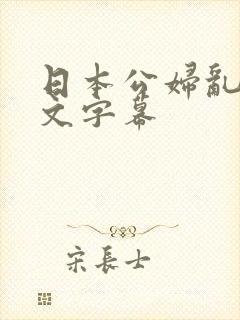 日本公婦亂
文字幕
宋長士